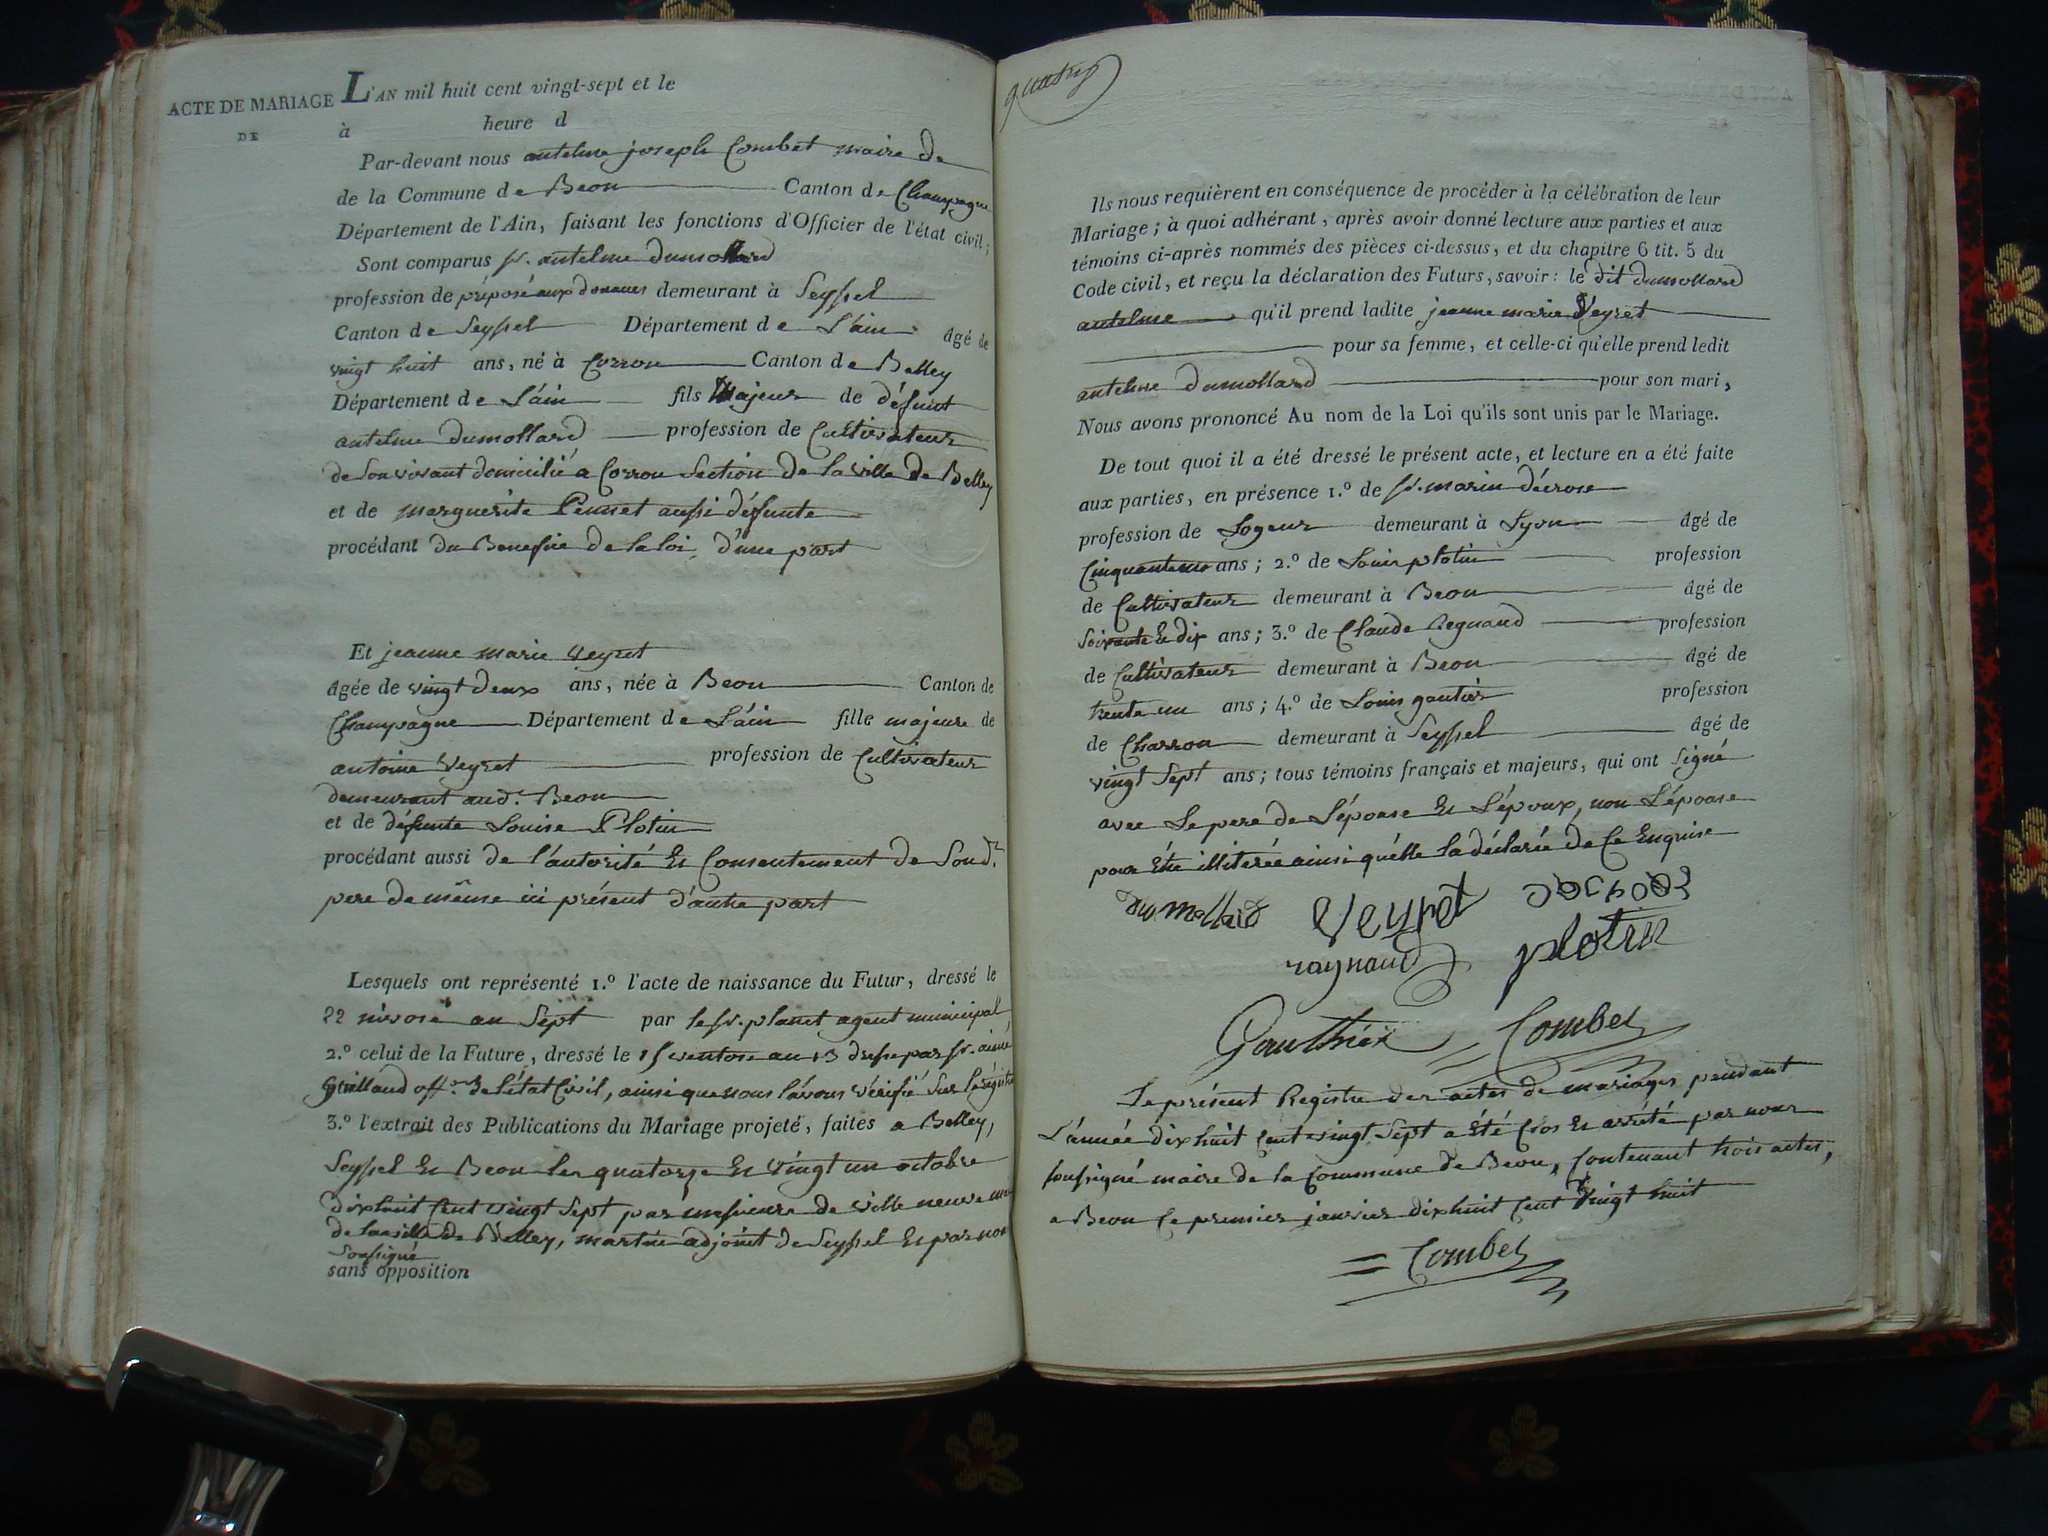 ACTE DE MARIAGE
DE
L'AN mil huit cent vingt-sept et le
à heure d
Par-devant nous antelme joseph Combet maire de
de la Commune de Beon Canton de Champagne
Département de l'Ain, faisant les fonctions d'Officier de l'état civil;
Sont comparus sr. antelme dumollard
profession de préposé aux douanes demeurant à Seyssel
Canton de Seyssel Département de L'ain âgé de
vingt huit ans, né à Corron Canton de Belley
Département de L'ain fils Majeur de défunt
antelme dumollard profession de Cultivateur
de son vivant domicilié a Corron Section de la ville de Belley
et de marguerite Pennet aussi défunte
procédant du Benefice de la loi, d'une part
Et jeanne marie Veyret
âgée de vingt deux ans, née à Beon Canton de
Champagne Département de L'ain fille majeure de
antoine Veyret profession de Cultivateur
demeurant aud. Beon
et de défunte Louise Plotin
procédant aussi de l'autorité et Consentement de Sond.
pere de même ici présent d'autre part
Lesquels ont représenté 1.º l'acte de naissance du Futur, dressé le
22 nivose an Sept par le sr. planet agent municipal,
2.º celui de la Future, dressé le 15 ventose an 13 par sr. aimé
Guillaud off. de l'état Civil, ainsi que nous l'avons vérifié Sur le régistre
3.º l'extrait des Publications du Mariage projeté, faites a Belley,
Seyssel et Beon les quatorze et vingt un octobre
dixhuit Cent vingt Sept par messieurs de ville neuve
de la ville de Belley, martin adjoint de Seyssel et par nous
Soussigné
sans opposition
Ils nous requièrent en conséquence de procéder à la célébration de leur
Mariage; à quoi adhérant, après avoir donné lecture aux parties et aux
témoins ci-après nommés des pièces ci-dessus, et du chapitre 6 tit. 5 du
Code civil, et reçu la déclaration des Futurs, savoir: le dit dumollard
antelme qu'il prend ladite jeanne marie Veyret
pour sa femme, et celle-ci qu'elle prend ledit
antelme dumollard pour son mari,
Nous avons prononcé Au nom de la Loi qu'ils sont unis par le Mariage.
De tout quoi il a été dressé le présent acte, et lecture en a été faite
aux parties, en présence 1.º de sr. marin décrose
profession de Logeur demeurant à Lyon âgé de
Cinquante ans; 2.º de Louis plotin profession
de Cultivateur demeurant à Beon âgé de
Soixante et dix ans; 3.º de Claude Regnaud profession
de Cultivateur demeurant à Beon âgé de
trente un ans; 4.º de Louis gautier profession
de Charron demeurant à Seyssel âgé de
vingt Sept ans; tous témoins français et majeurs, qui ont Signé
avec Le pere de L'épouse et L'époux, non L'épouse
pour être illiterée ainsi qu'elle la déclaré de Ce Enquise
dumollard Veyret
raynaud plotin
Gauthier Combet
Le présent Registre des actes de mariages pendant
L'année dixhuit Cent vingt Sept a été Clos et arrété par nous
soussigné maire de la Commune de Beon, Contenant trois actes,
a Beon Ce premier janvier dixhuit Cent vingt huit
Combet